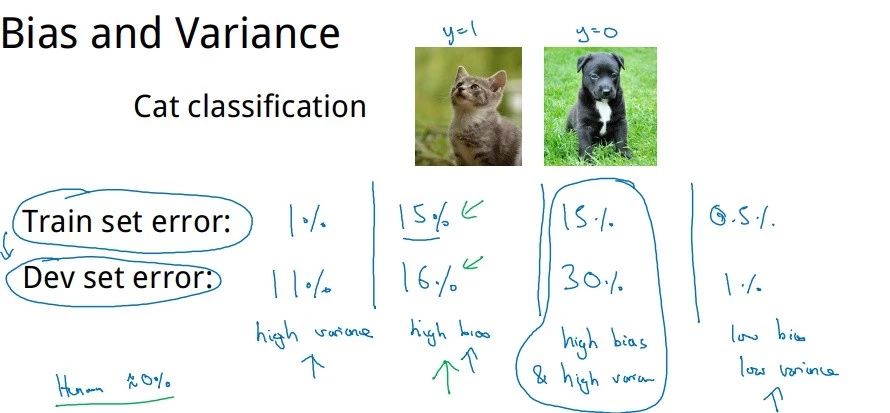 Bias and Variance
y=1 y=0
Cat classification
Train set error: 1% 15% 15% 0.5%
Dev set error: 11% 16% 30% 1%
high variance high bias high bias low bias
& high low variance
Human ≈0%